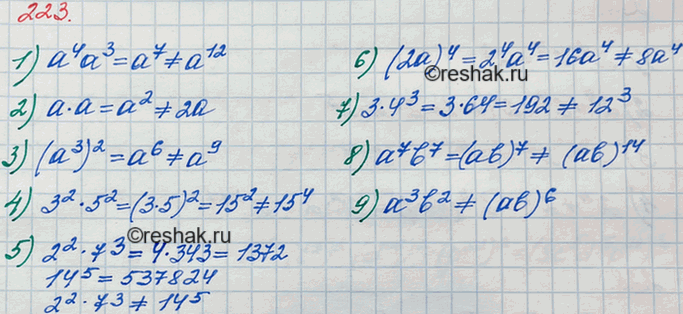 223.
1) a⁴a³=a⁷≠a¹²
2) a·a=a²≠2a
3) (a³)²=a⁶≠a⁹
4) 3²·5²=(3·5)²=15²≠15⁴
5) 2²·7³=4·343=1372
14⁵=537824
2²·7³≠14⁵
6) (2a)⁴=2⁴a⁴=16a⁴≠8a⁴
7) 3·4³=3·64=192≠12³
8) a⁷b⁷=(ab)⁷≠(ab)¹⁴
9) a³b²≠(ab)⁶
©reshak.ru
©reshak.ru